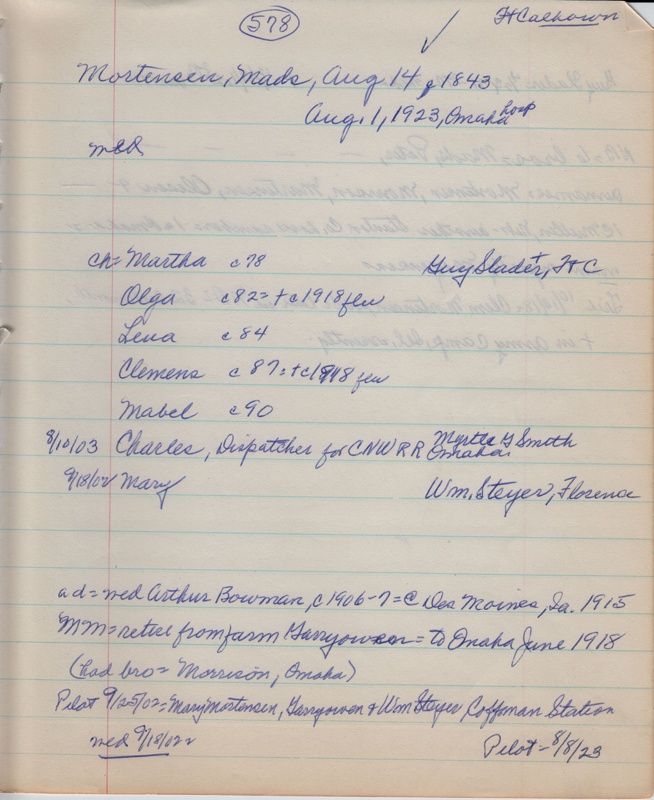 578
Ft Calhoun
Mortensen, Mads, Aug 14, 1843
Aug. 1, 1923, Omaha Hosp
med
ch= Martha c78 Guy Slader+, Ft C
Olga c82= + c1918 flu
Lena c84
Clemens c87= + c1918 flu
Mabel c90
8/10/03 Charles, Dispatcher for CNW RR Myrtle G Smith
Omaha
9/18/02 Mary Wm. Steyer, Florence
ad= med Arthur Bowman, c1906-7= @ Des Moines, Ia. 1915
MM= retire from farm Garryowen= to Omaha June 1918
(had bro= Morrison, Omaha)
Pilot 9/25/02= Mary Mortensen, Garryowen & Wm Steyer, Coffman Station
med 9/18/02
Pilot- 8/8/23